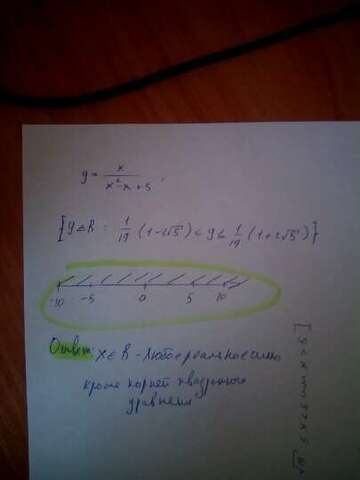 y = x / (x² - x + 5),
{y ∈ R : 1/19 (1-2√5) ≤ y ≤ 1/19 (1+2√5)}
-10 -5 0 5 10
Ответ: x ∈ R - Любое реальное число
кроме корней квадратного
уравнения